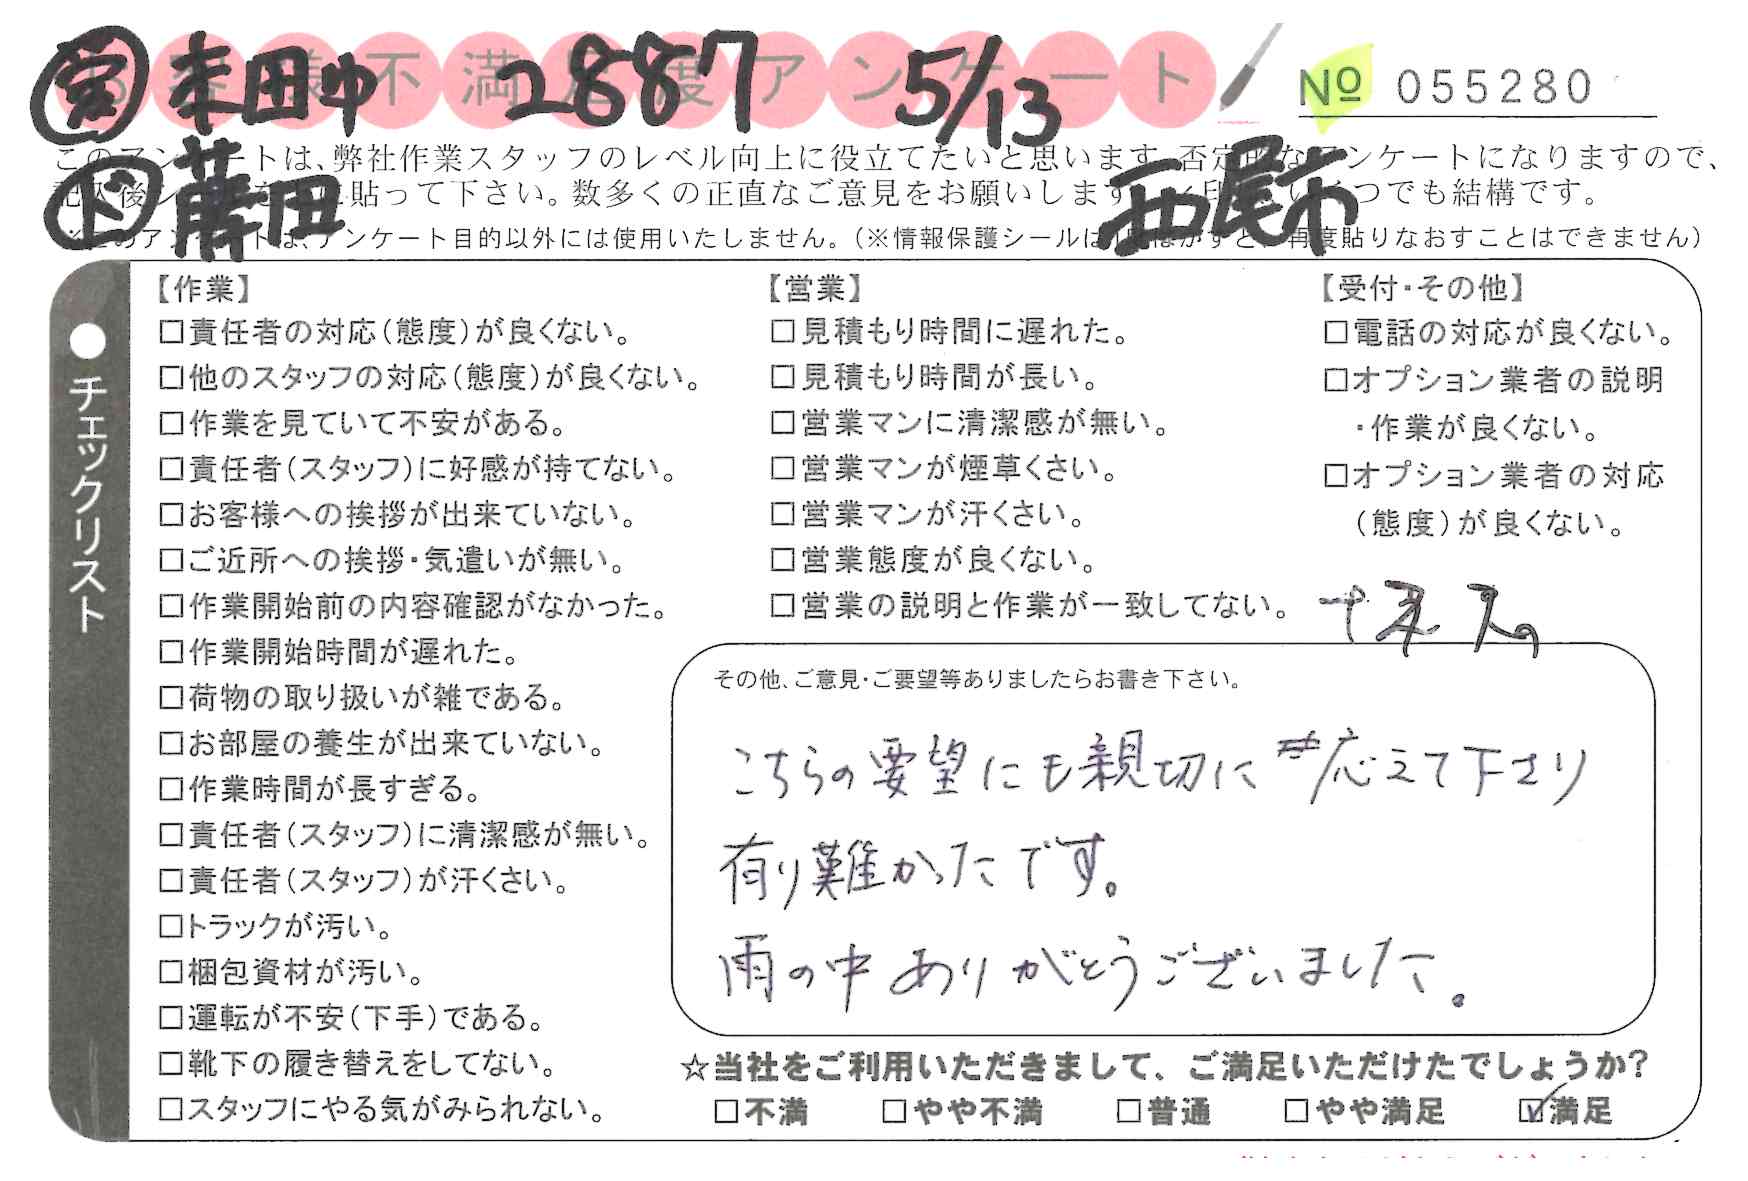 お客様不満足度アンケート
2887 5/13
№ 055280
藤田
西尾市
このアンケートは、弊社作業スタッフのレベル向上に役立てたいと思います。否定的なアンケートになりますので、
貼って下さい。数多くの正直なご意見をお願いします
つでも結構です。
※このアンケートは、アンケート目的以外には使用いたしません。(※情報保護シールは1度はがすと、再度貼りなおすことはできません)
●チェックリスト
【作業】
□責任者の対応(態度)が良くない。
□他のスタッフの対応(態度)が良くない。
□作業を見ていて不安がある。
□責任者(スタッフ)に好感が持てない。
□お客様への挨拶が出来ていない。
□ご近所への挨拶・気遣いが無い。
□作業開始前の内容確認がなかった。
□作業開始時間が遅れた。
□荷物の取り扱いが雑である。
□お部屋の養生が出来ていない。
□作業時間が長すぎる。
□責任者(スタッフ)に清潔感が無い。
□責任者(スタッフ)が汗くさい。
□トラックが汚い。
□梱包資材が汚い。
□運転が不安(下手)である。
□靴下の履き替えをしてない。
□スタッフにやる気がみられない。
【営業】
□見積もり時間に遅れた。
□見積もり時間が長い。
□営業マンに清潔感が無い。
□営業マンが煙草くさい。
□営業マンが汗くさい。
□営業態度が良くない。
□営業の説明と作業が一致してない。
【受付・その他】
□電話の対応が良くない。
□オプション業者の説明
・作業が良くない。
□オプション業者の対応
(態度)が良くない。
その他、ご意見・ご要望等ありましたらお書き下さい。
こちらの要望にも親切に応えて下さり
有り難かったです。
雨の中ありがとうございました。
☆当社をご利用いただきまして、ご満足いただけたでしょうか?
□不満 □やや不満 □普通 □やや満足 ☑満足